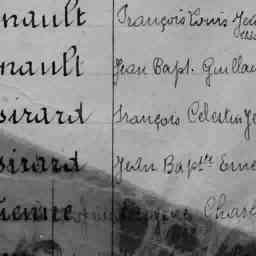 nault François Louis Jea
nault Jean Bapt. Guillau
sirard François Celestin Je
sirard Jean Bapte Erne
ienne Eugène Charl